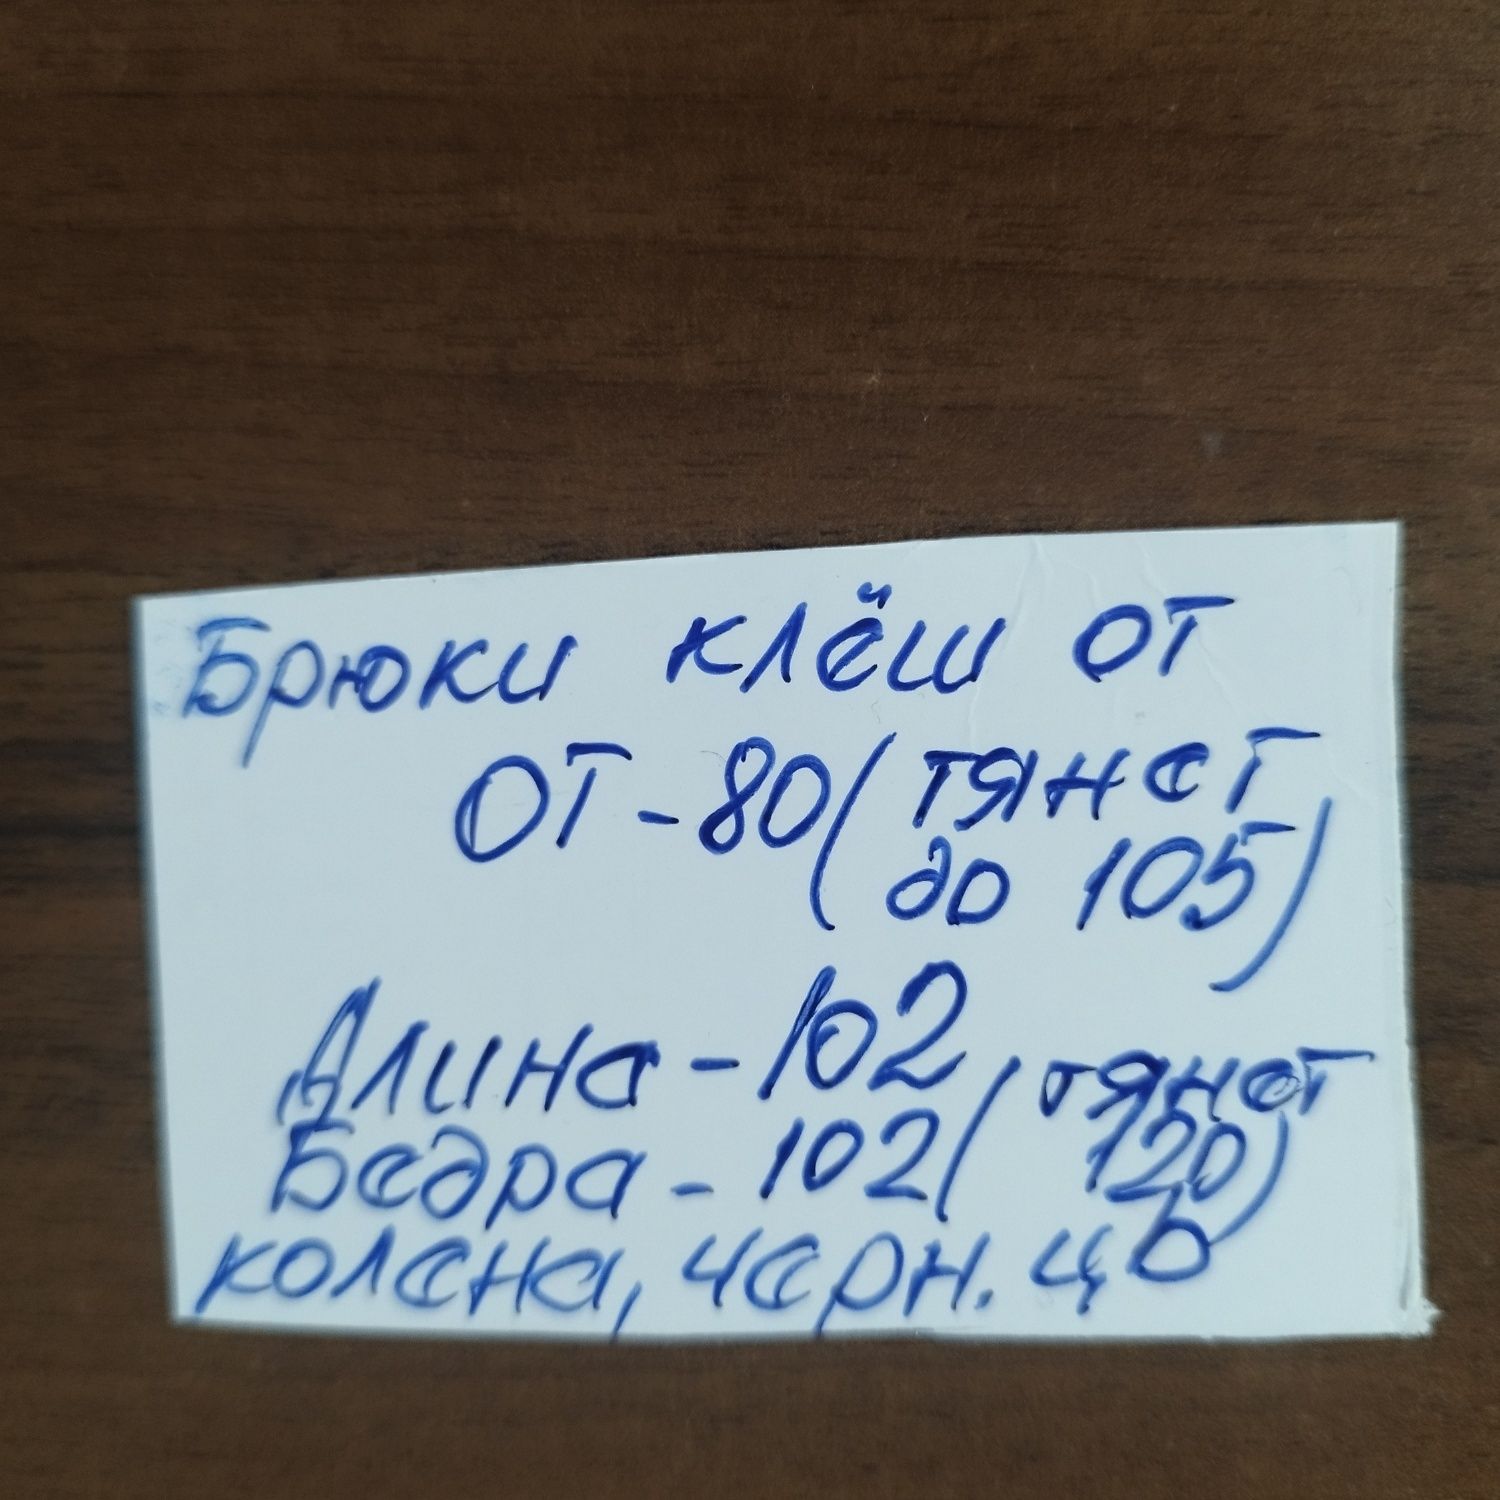 Брюки клёш от
ОТ - 80 ( тянет
до 105)
Длина - 102
Бедра - 102 ( тянет
120)
колена, черн. цв